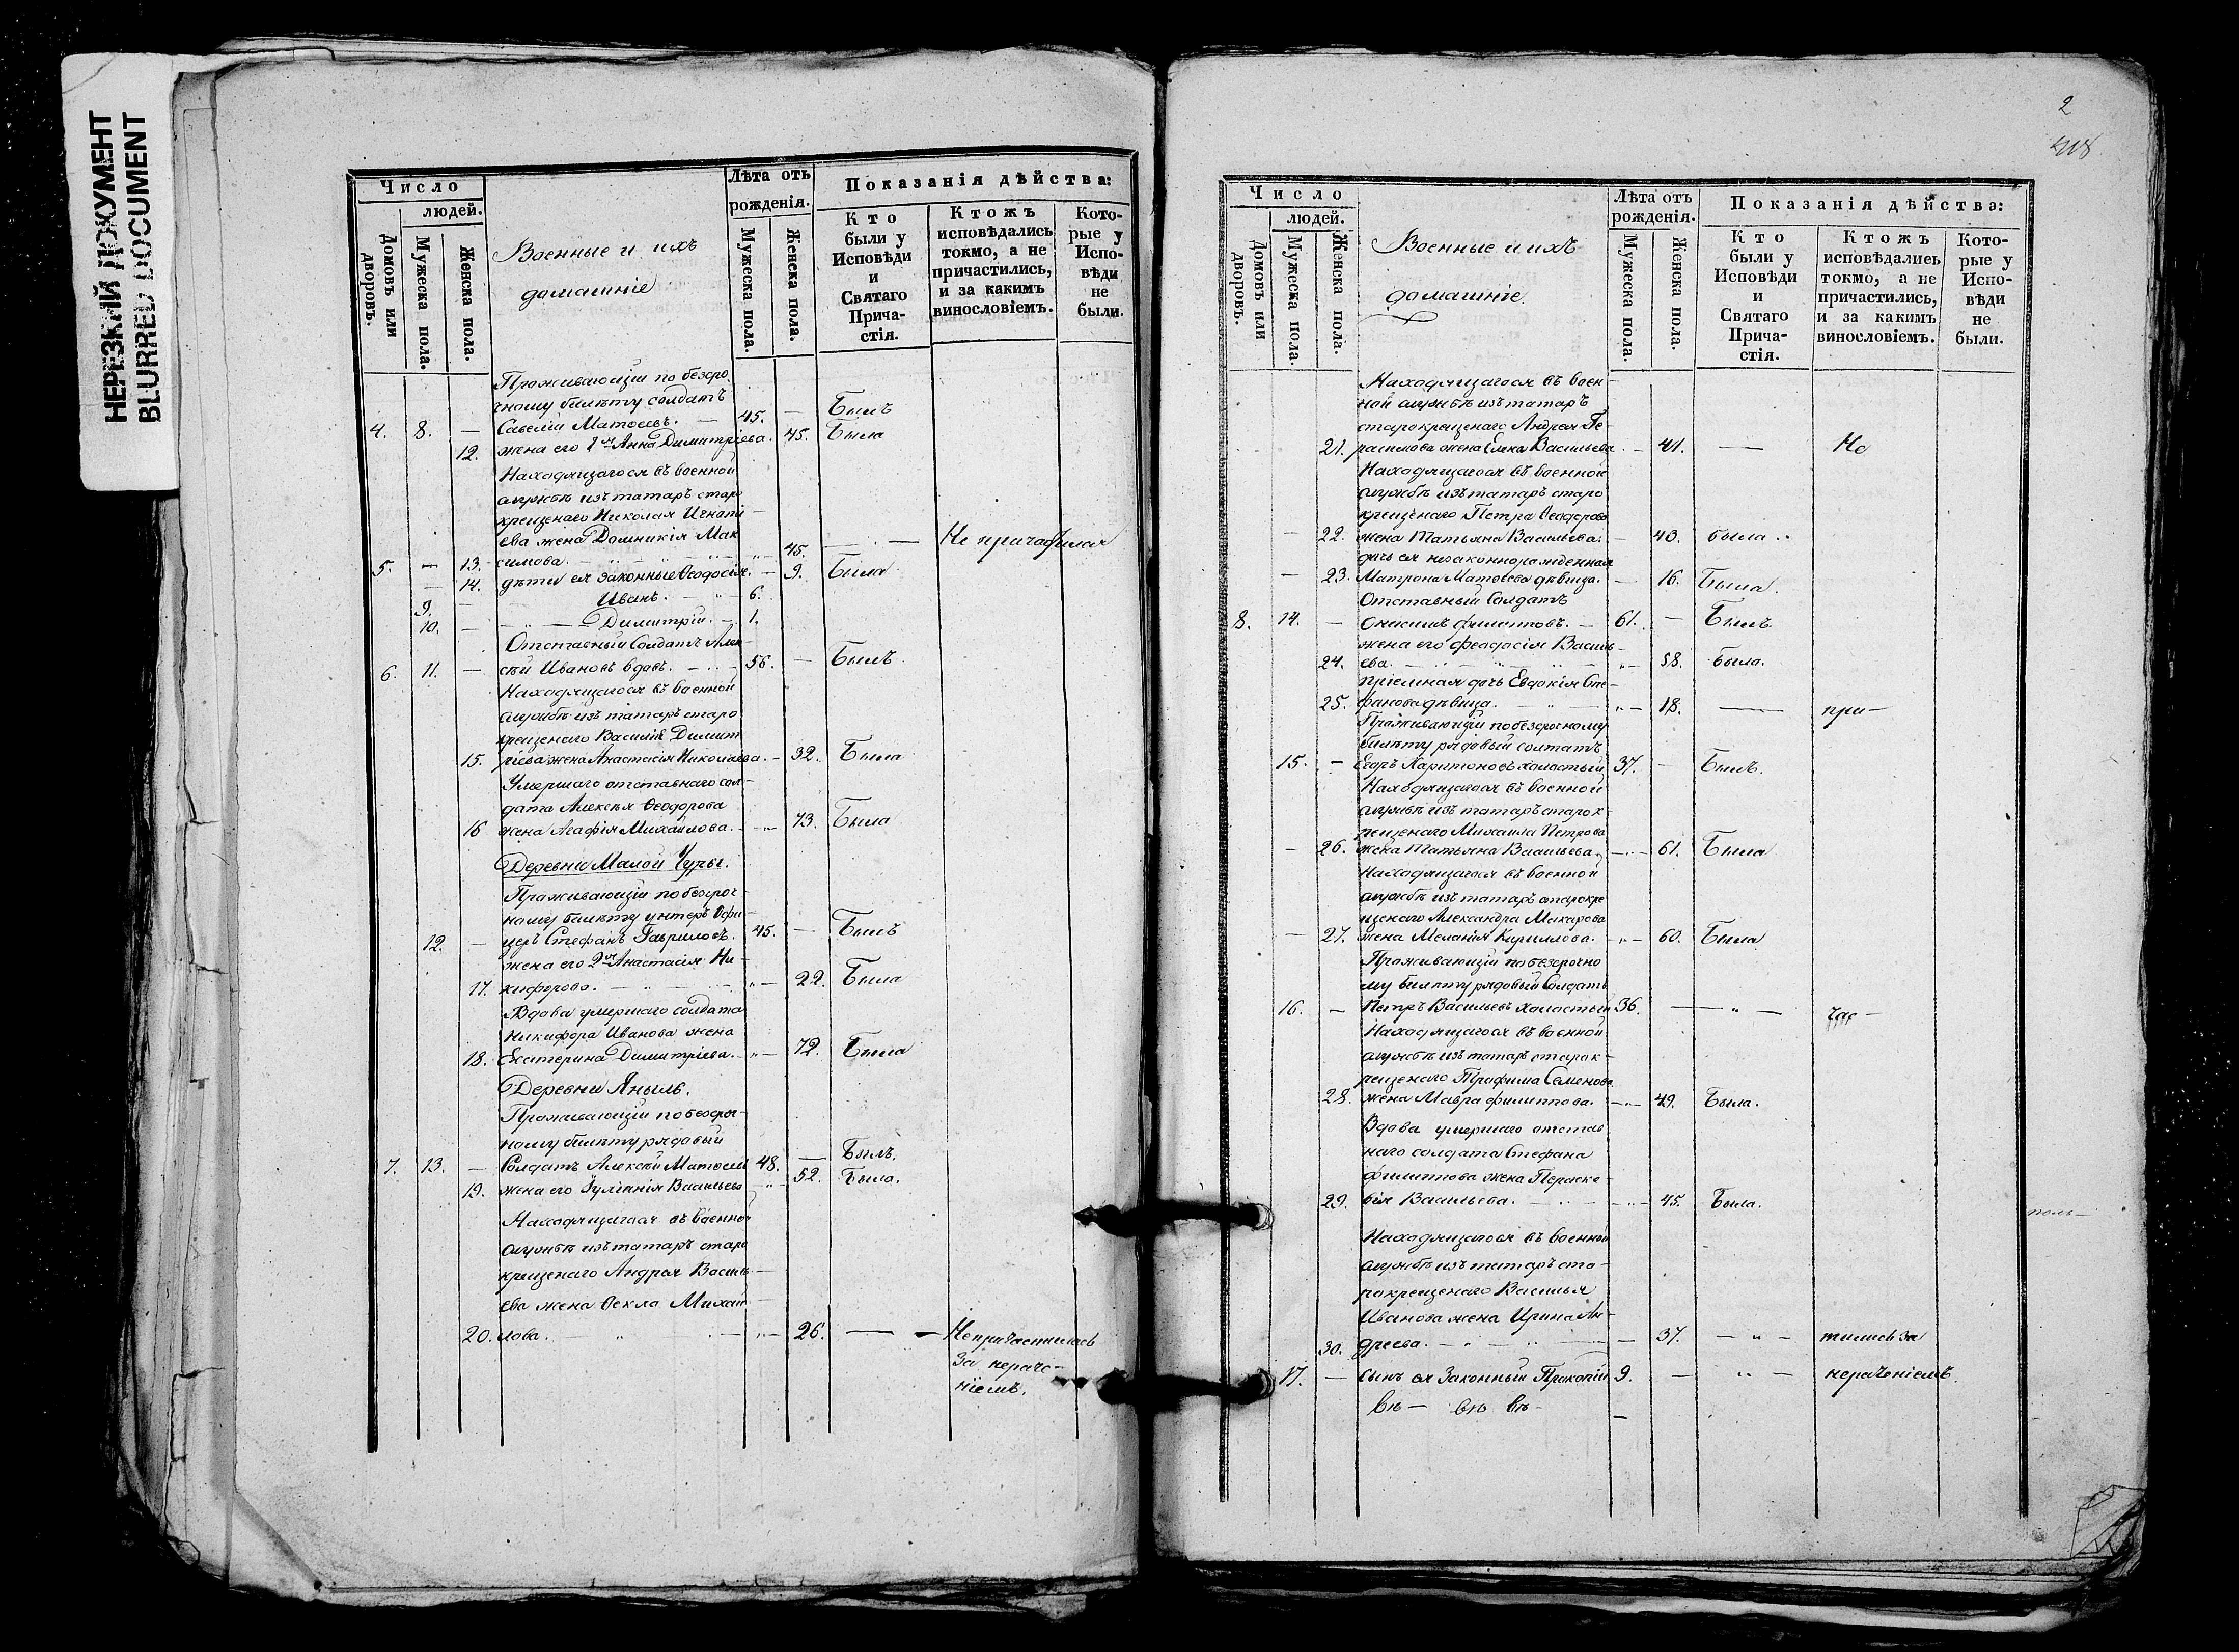 НЕРЕЗКИЙ ДОКУМЕНТ
BLURRED DOCUMENT
Число
людей.
Домовъ или дворовъ.
Мужеска пола.
Женска пола.
Военные и ихъ
домашніе
Лѣта отъ
рожденія.
Мужеска пола.
Женска пола.
Показанія дѣйства:
Кто
были у
Исповѣди
и
Святаго
Прича-
стія.
Ктожъ
исповѣдались
токмо, а не
причастились,
и за какимъ
винословіемъ.
Кото-
рые у
Испо-
вѣди
не
были.
Проживающій по безсро
чному билѣту солдатъ
4. 8. — Савелій Матѳеевъ. — 45. — Былъ
12. жена его 2я Анна Димитріева. 45. Была
Находящагося въ военной
службѣ изъ татаръ старо
крещенаго Николая Игнатi
ева жена Домникія Мак
5. — 13. симова. 45. — Не причастилась
— 14. дѣти ея законные Ѳеодосія. — 9. Была
9. — Иванъ. 6.
10. — Димитрій. 1.
Отставный Солдатъ Алек
6. 11. — сѣй Ивановъ вдовъ. 56. — Былъ
Находящагося въ военной
службѣ изъ татаръ старо
крещенаго Василія Димит
15. ріева жена Анастасія Николаева. — 32. Была
Умершаго отставнаго сол-
дата Алексѣя Ѳеодорова
16 жена Агафія Михайлова. 73. Была
Деревни Малой Чуры.
Проживающій по безсроч-
ному билѣту унтеръ Офи-
12. — церъ Стефанъ Гавриловъ. 45. — Былъ
жена его 2я Анастасія Ни-
17. кифорова. 22. Была
Вдова умершаго солдата
Никифора Иванова жена
18. Екатерина Димитріева. 72. Была
Деревни Яныль.
Проживающій по безсроч-
ному билѣту рядовый
7. 13. — Солдатъ Алексѣй Матѳеевъ 48. — Былъ.
19. жена его Іуліанія Васильева 52. Была.
Находящагося въ военной
службѣ изъ татаръ старо
крещенаго Андрея Василь-
ева жена Ѳекла Михай
20. лова. 26. — Не причастилась
за нераче-
ніемъ.
2
Число
людей.
Домовъ или дворовъ.
Мужеска пола.
Женска пола.
Военные и ихъ
домашніе.
Лѣта отъ
рожденія.
Мужеска пола.
Женска пола.
Показанія дѣйства:
Кто
были у
Исповѣди
и
Святаго
Прича-
стія.
Ктожъ
исповѣдались
токмо, а не
причастились,
и за какимъ
винословіемъ.
Кото-
рые у
Испо-
вѣди
не
были.
Находящагося въ воен-
ной службѣ изъ татаръ
старокрещенаго Андрея Ге-
21. расимова жена Елена Васильева — 41. — Не
Находящагося въ военной
службѣ изъ татаръ старо
крещенаго Петра Ѳеодорова
— 22. жена Татьяна Васильева. — 43. была
дочь ея незаконнорожденная
— 23. Матрона Матѳеева дѣвица. — 16. Была.
Отставный Солдатъ
8. 14. — Онисимъ Филиповъ. — 61. — Былъ
жена его Феодосія Василь-
24. ева. 58. Была.
пріемная дочь Евдокія Сте-
25. фанова дѣвица. 18. — при-
Проживающій по безсрочному
билѣту рядовый солтатъ
15. — Егоръ Харитоновъ холостый 37. — Былъ.
Находящагося въ военной
службѣ изъ татаръ старок
рещенаго Михаила Петрова
— 26. жена Татьяна Васильева. 61. Была
Находящагося въ военной
службѣ изъ татаръ старокре
щенаго Александра Макарова
— 27. жена Меланія Кириллова. 60. Была
Проживающій по безсрочно
му билѣту рядовый Солдатъ
16. — Петръ Васильевъ холостый 36. — час-
Находящагося въ военной
службѣ изъ татаръ старок-
рещенаго Трофима Семенова
28. жена Мавра Филиппова. 49. Была.
Вдова умершаго отстав
наго солдата Стефана
Филиппова жена Параске-
29. вія Васильева. 45. Была.
Находящагося въ военной
службѣ изъ татаръ ста-
рокрещенаго Василья
Иванова жена Ирина Ан-
30. дреева. — 37. — тились за
17. — сынъ ея Законный Прокопій 9. — нераченіемъ